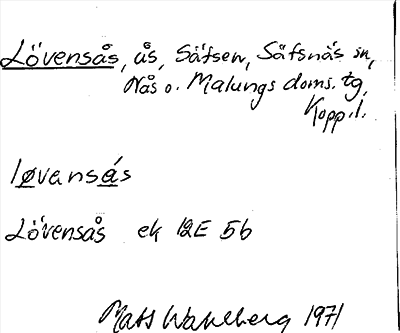 Lövensås, ås, Säfsen, Säfsnäs sn,
Nås o. Malungs doms. tg,
Kopp. l.
løvansás
Lövensås ek 12E 5b
Mats Wahlberg 1971